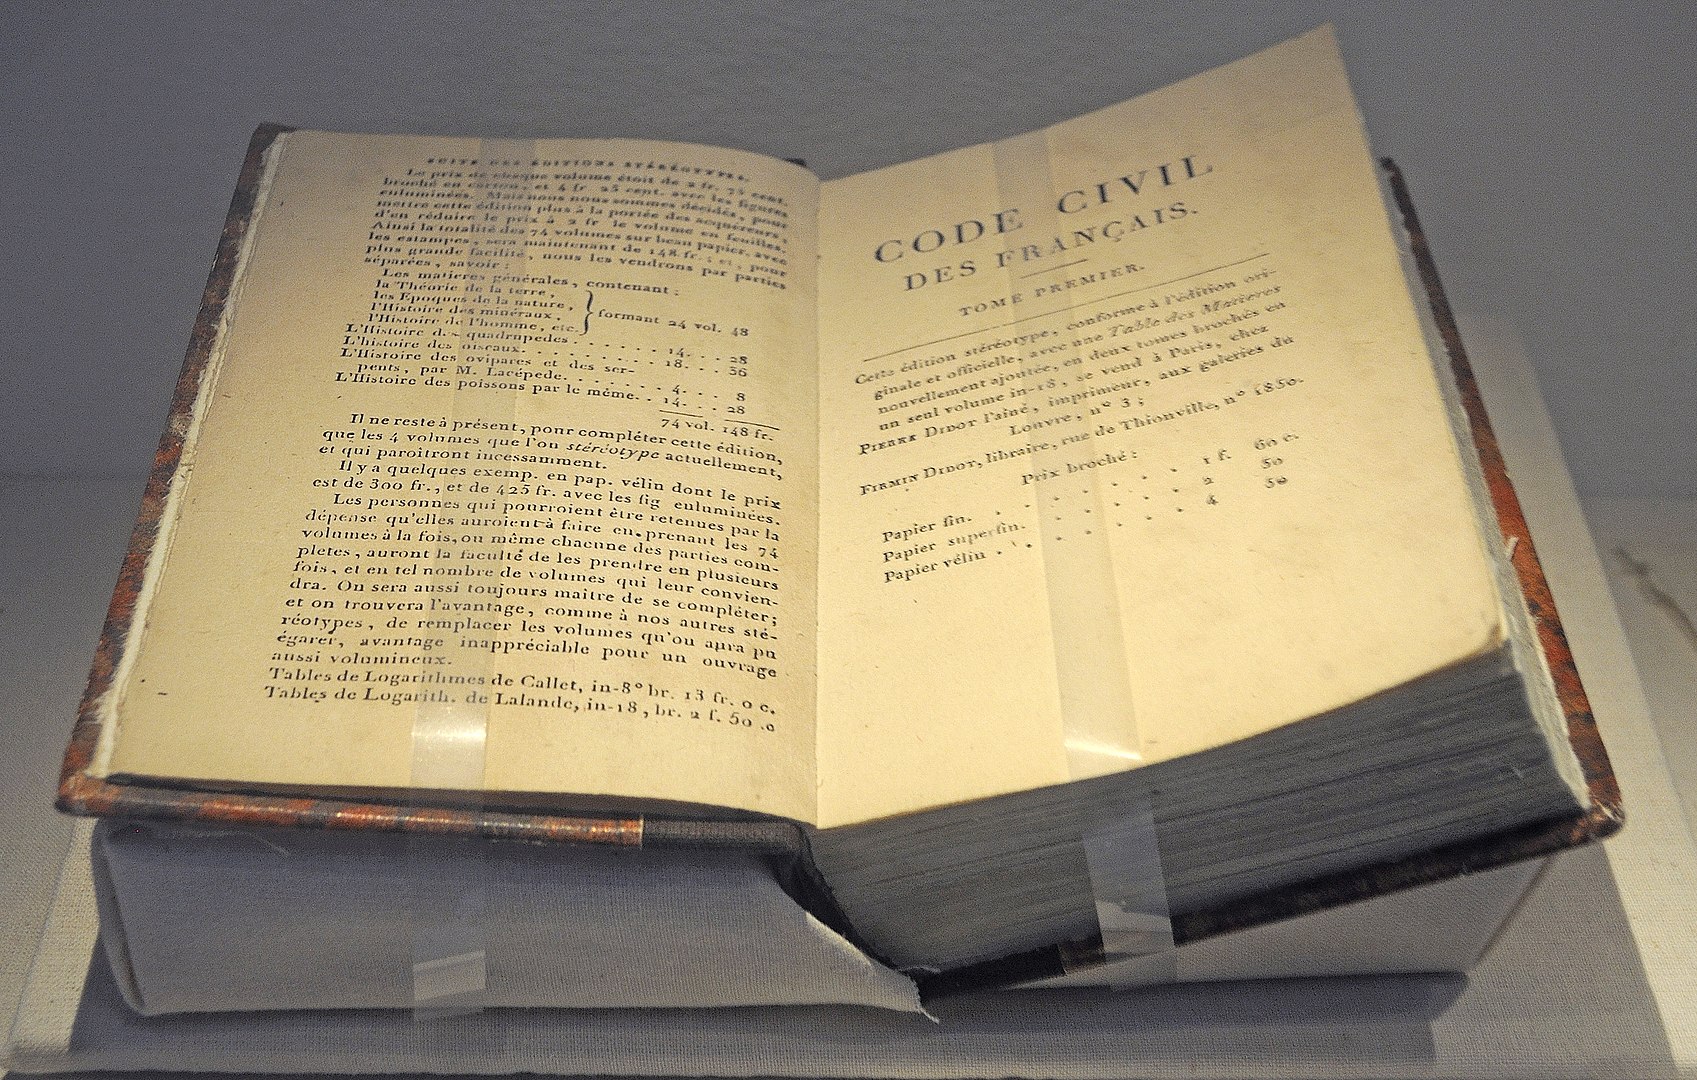 SUITE DES ÉDITIONS STÉRÉOTYPES.
Le prix de chaque volume étoit de 2 fr. 75 cent.
broché en carton, et 4 fr. 25 cent. avec les figures
enluminées. Mais nous nous sommes décidés, pour
mettre cette édition plus à la portée des acquéreurs,
d'en réduire le prix à 2 fr. le volume en feuilles.
Ainsi la totalité des 74 volumes sur beau papier, avec
les estampes, sera maintenant de 148 fr.; et, pour
plus grande facilité, nous les vendrons par parties
séparées, savoir:
Les matieres générales, contenant:
la Théorie de la terre,
les Époques de la nature,
l'Histoire des minéraux,
l'Histoire de l'homme, etc.
} formant 24 vol. 48
L'Histoire des quadrupedes . . . . . . 14. . . 28
L'histoire des oiseaux. . . . . . . . 18. . . 36
L'Histoire des ovipares et des ser-
pents, par M. Lacépede. . . . . . . 4. . . 8
L'Histoire des poissons par le même. . 14. . . 28
74 vol. 148 fr.
Il ne reste à présent, pour compléter cette édition,
que les 4 volumes que l'on stéréotype actuellement,
et qui paroîtront incessamment.
Il y a quelques exemp. en pap. vélin dont le prix
est de 300 fr., et de 425 fr. avec les fig enluminées.
Les personnes qui pourroient être retenues par la
dépense qu'elles auroient à faire en prenant les 74
volumes à la fois, ou même chacune des parties com-
pletes, auront la faculté de les prendre en plusieurs
fois, et en tel nombre de volumes qui leur convien-
dra. On sera aussi toujours maître de se compléter;
et on trouvera l'avantage, comme à nos autres sté-
réotypes, de remplacer les volumes qu'on aura pu
égarer, avantage inappréciable pour un ouvrage
aussi volumineux.
Tables de Logarithmes de Callet, in-8° br. 13 fr. 0 c.
Tables de Logarith. de Lalande, in-18, br. 2 f. 50 .0
CODE CIVIL
DES FRANÇAIS.
TOME PREMIER.
Cette édition stéréotype, conforme à l'édition ori-
ginale et officielle, avec une Table des Matieres
nouvellement ajoutée, en deux tomes brochés en
un seul volume in-18, se vend à Paris, chez
PIERRE DIDOT l'aîné, imprimeur, aux galeries du
Louvre, n° 3;
FIRMIN DIDOT, libraire, rue de Thionville, n° 1850.
Prix broché:
Papier fin. . . . . . . 1 f. 60 c.
Papier superfin. . . . . . 2 50
Papier vélin . . . . . . . 4 50